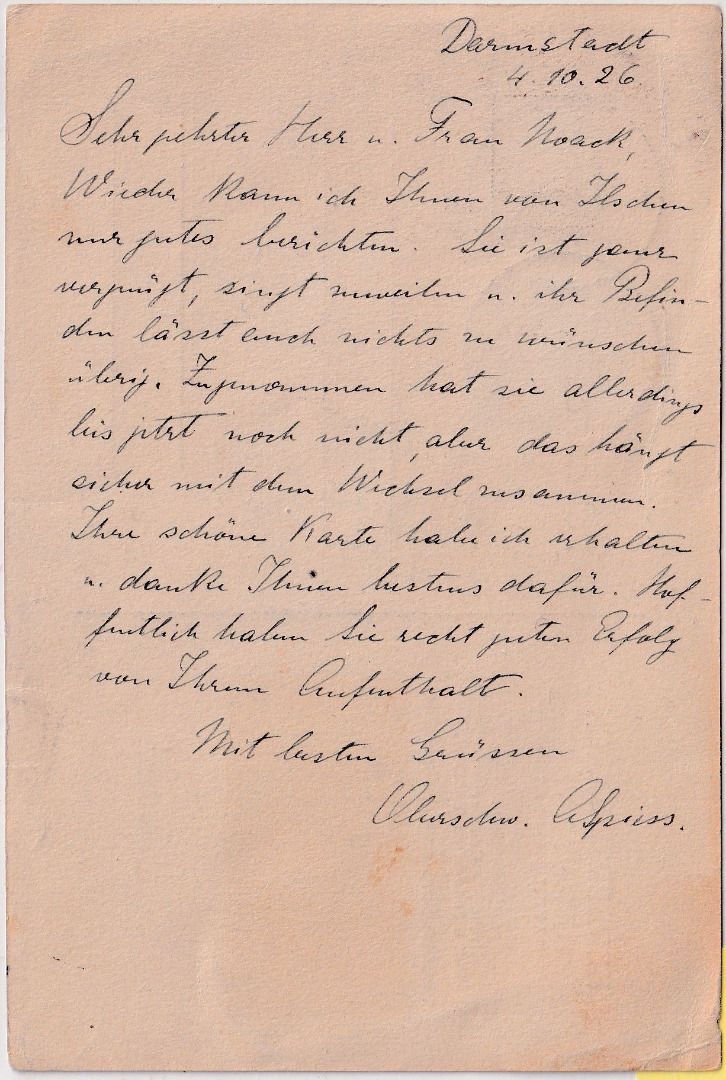 Darmstadt
4.10.26
Sehr geehrter Herr u. Frau Noack,
Wieder kann ich Ihnen von Ilschen
nur gutes berichten. Sie ist ganz
vergnügt, singt zuweilen u. ihr Befin-
den lässt auch nichts zu wünschen
übrig. Zugenommen hat sie allerdings
bis jetzt noch nicht, aber das hängt
sicher mit dem Wechsel zusammen.
Ihre schöne Karte habe ich erhalten
u. danke Ihnen bestens dafür. Hof-
fentlich haben Sie recht guten Erfolg
von Ihrem Aufenthalt.
Mit besten Grüssen
Oberschw. A Spiess.